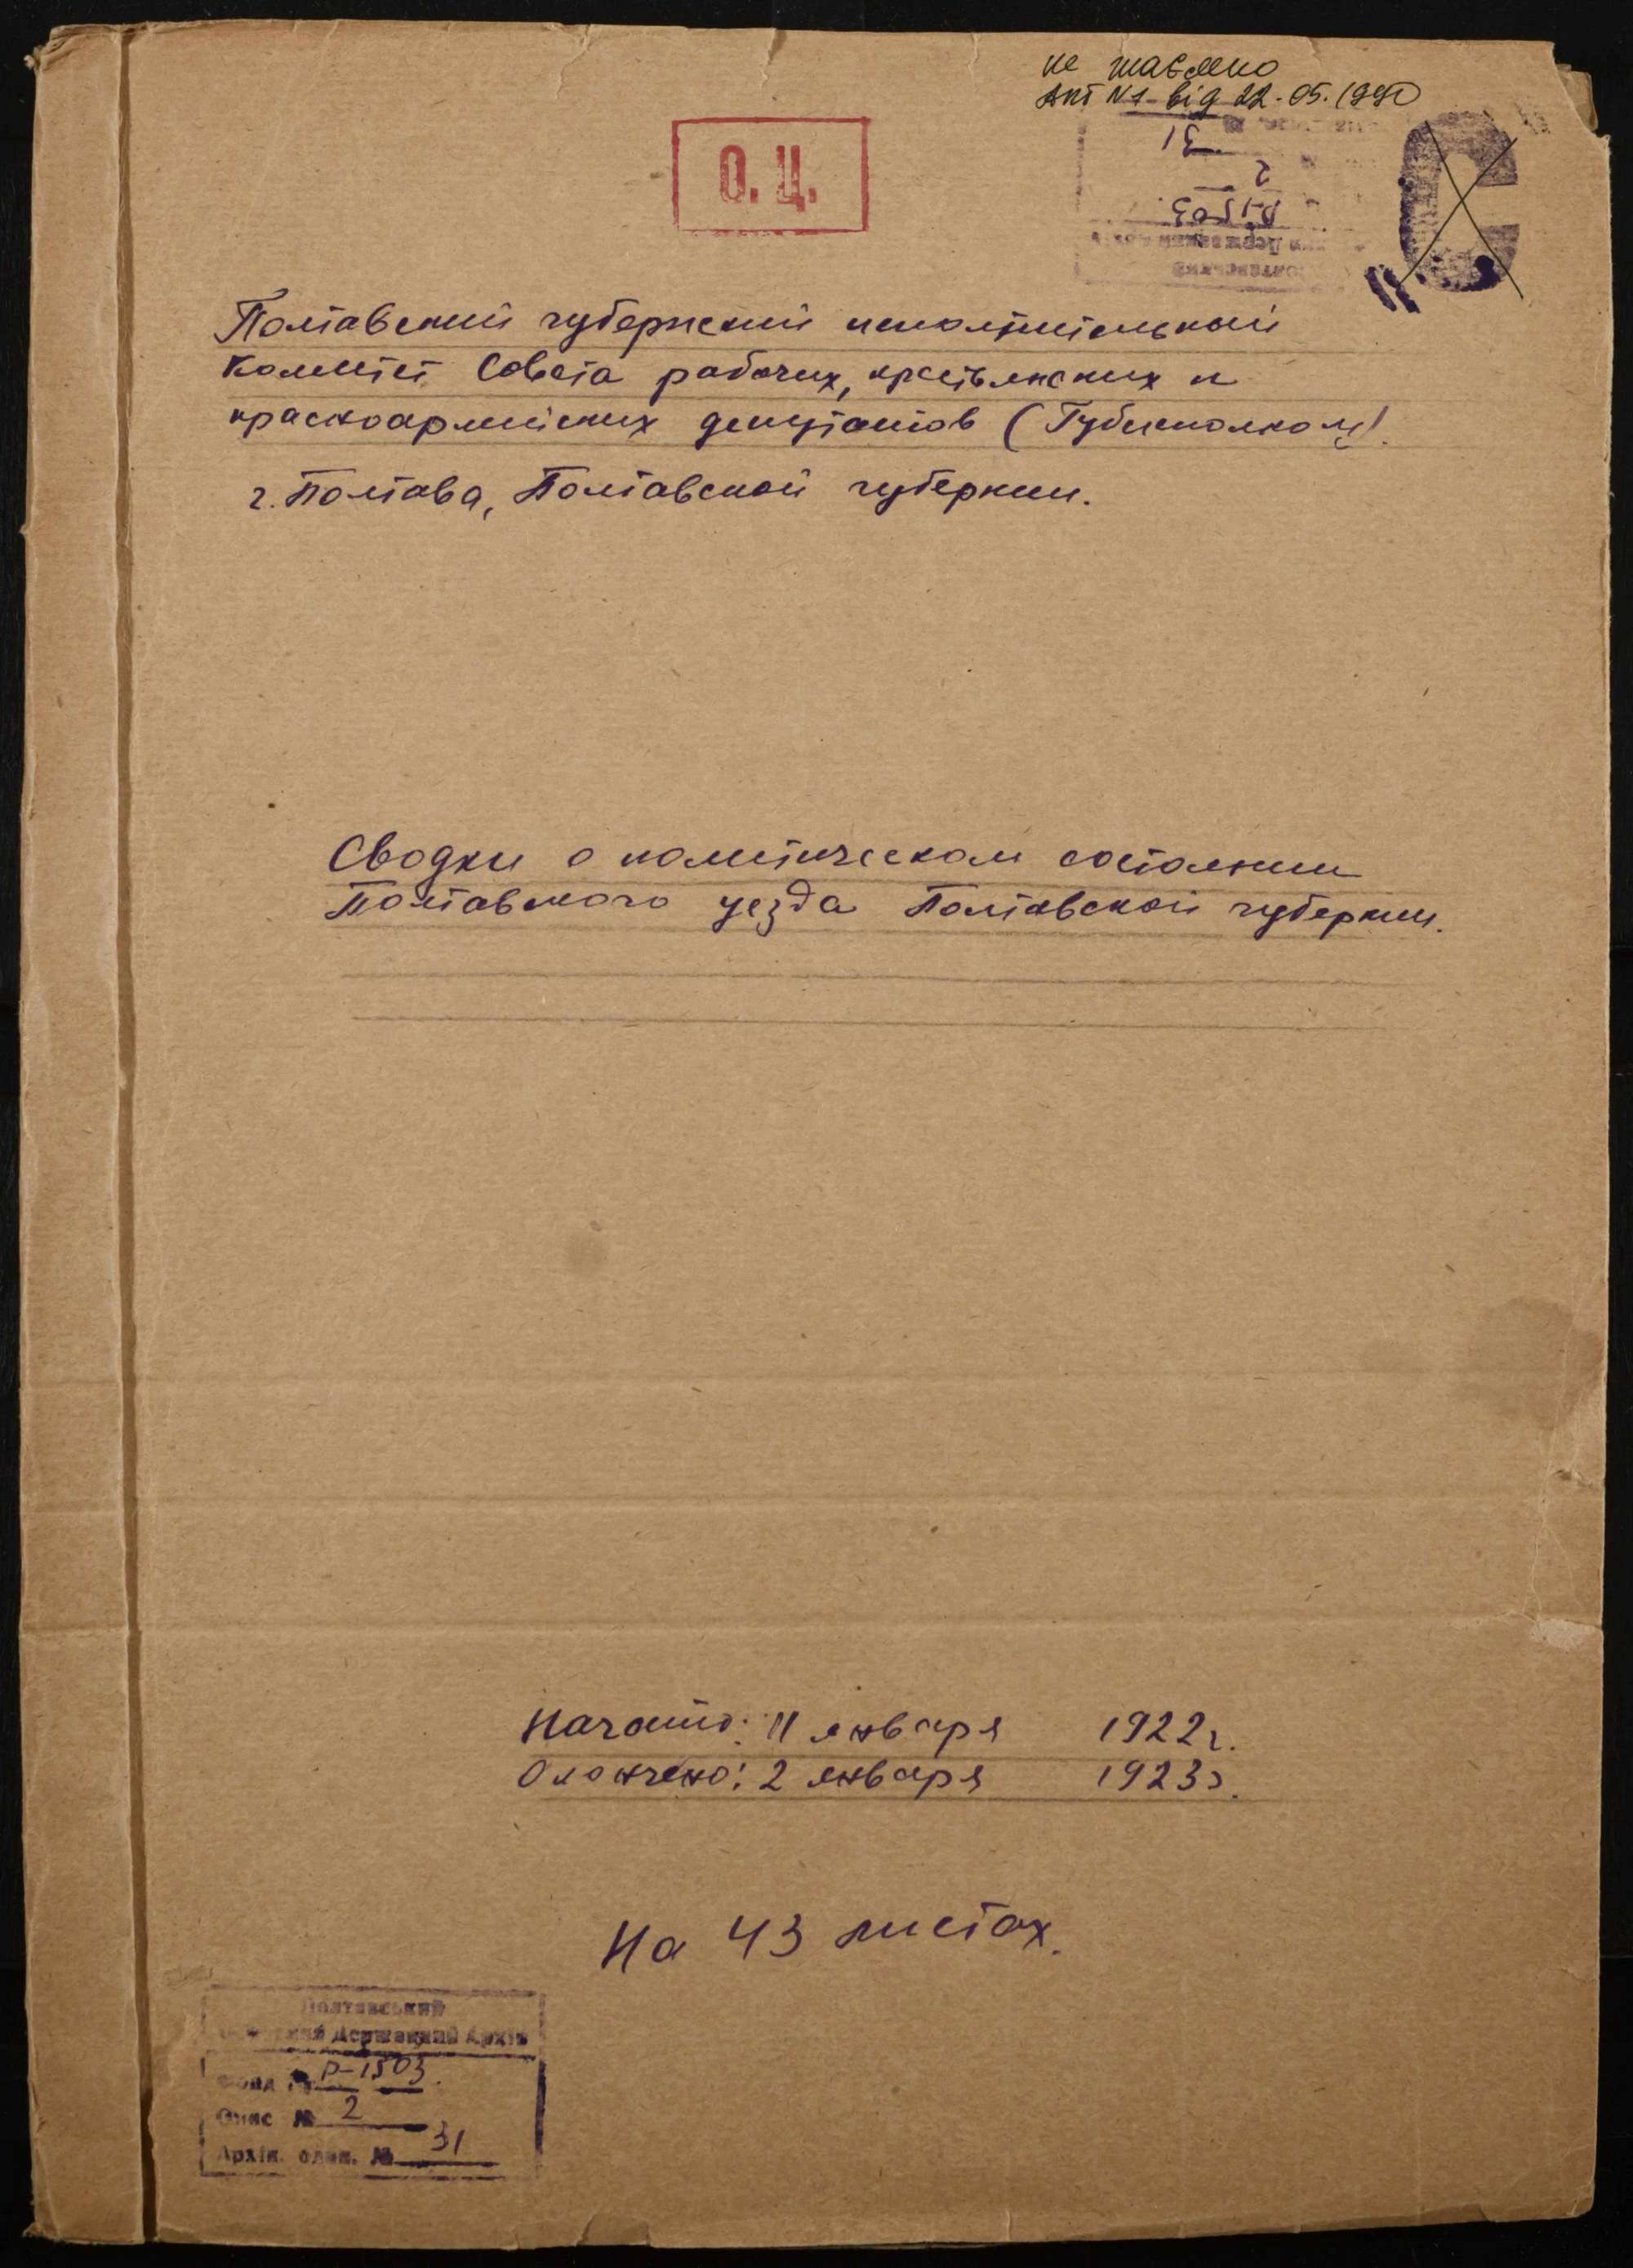 не таємно
Акт №1 від 22.05.1990
О. Ц.
31
2
Р-1503
С
Полтавский губернский исполнительный
Комитет Совета рабочих, крестьянских и
красноармейских депутатов (Губисполком).
г. Полтава, Полтавской губернии.
Сводки о политическом состоянии
Полтавского уезда Полтавской губернии.
Начато: 11 января 1922г.
Окончено: 2 января 1923г.
На 43 листах.
Полтавський
Державний Архів
Фонд № Р-1503
Опис № 2
Архів. один. № 31